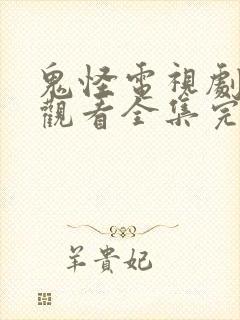 鬼怪電視劇
觀看全集完
羊貴妃